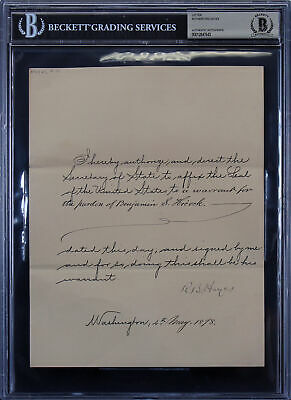 BECKETT GRADING SERVICES
BECKETT
AUTHENTIC AUTOGRAPH
I hereby authorize and direct the
Secretary of State to affix the Seal
of the United States to a warrant for
the pardon of Benjamin S.
dated this day, and signed by me
and for so doing this shall be his
warrant
R B Hayes
Washington, 1878.